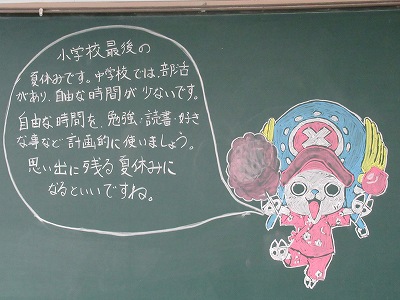 小学校最後の
夏休みです。中学校では、部活
があり、自由な時間が少ないです。
自由な時間を、勉強・読書・好き
な事など計画的に使いましょう。
思い出に残る夏休みに
なるといいですね。